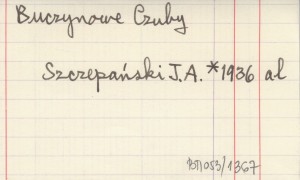 Buczynowe Czuby
Szczepański J.A. *1936 al
BTI053/1367